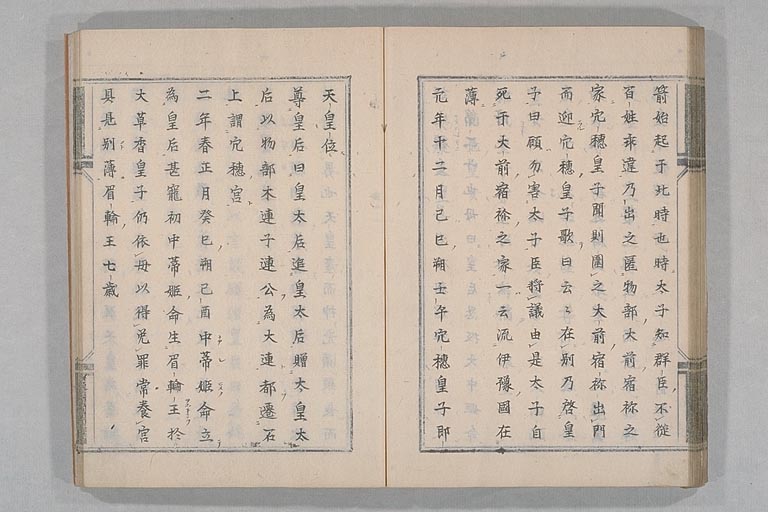 箭始起于此時也時太子知群臣不從
百姓乖違乃出之匿物部大前宿祢之
家穴穗皇子聞則圍之大前宿祢出門
而迎穴穗皇子歌曰云々在別乃啓皇
子曰願勿害太子臣將議由是太子自
死于大前宿祢之家一云流伊豫國在
薄
元年十二月己巳朔壬午穴穗皇子即
天皇位
尊皇后曰皇太后追皇太后贈太皇太
后以物部木連子連公為大連都遷石
上謂穴穗宮
二年春正月癸巳朔己酉中蒂姬命立
為皇后甚寵初中蒂姬命生眉輪王於
大草香皇子仍依母以得免罪常養宮
具是別薄眉輪王七歲